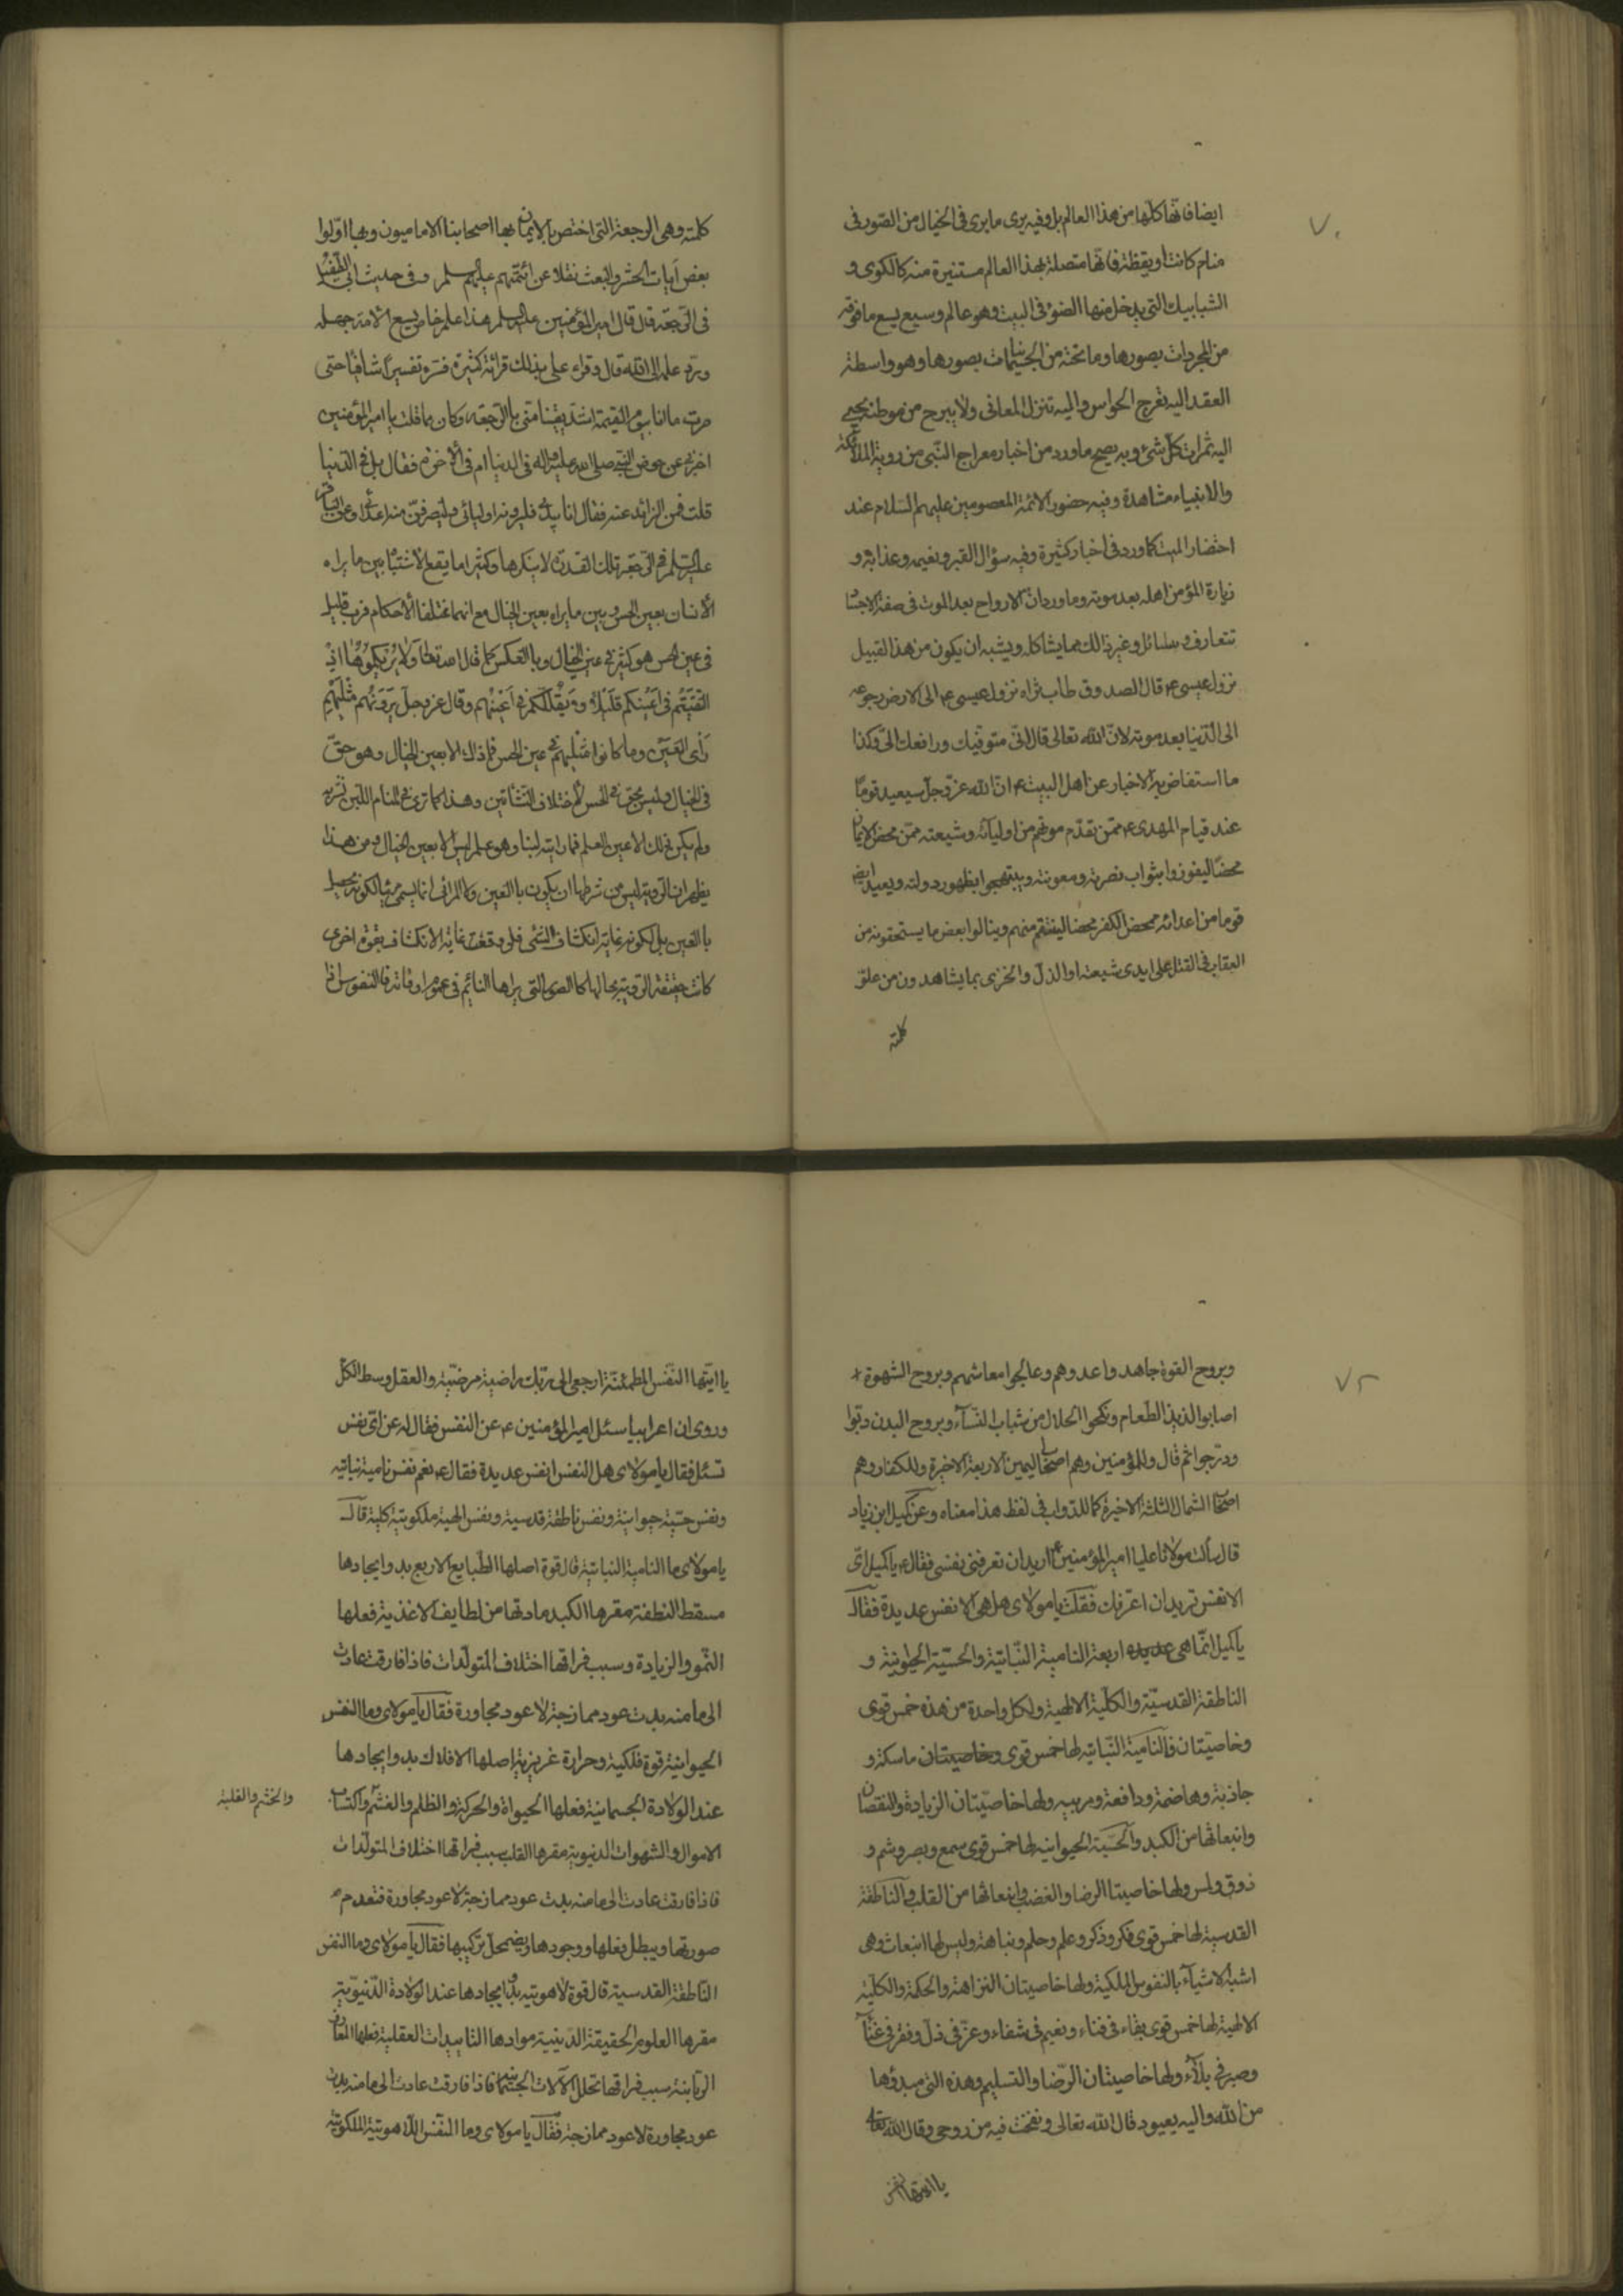 ٧٠
ايضا فانها كلها من هذا العالم بل وفيه يرى ما يرى فى الخيال من الصور فى
منام كانت او يقظة فانها متصلة بهذا العالم مستنيرة منه كالكوى و
الشبابيك التى يدخل منها الضوء فى البيت وهو عالم وسيع يسع ما فوقه
من المجردات بصورها وما تحته من الجسمانيات بصورها وهو واسطة
العقد اليه تعرج الحواس واليه تنزل المعانى ولا يبرح من موطنه يجبى
اليه ثمرات كل شئ وبه يصح ما ورد من اخبار معراج النبى من روية الملائكة
والانبياء مشاهدة وفيه حضور الائمة المعصومين عليهم السلام عند
احتضار الميت كما ورد فى اخبار كثيرة وفيه سؤال القبر ونعيمه وعذابه و
زيارة المؤمن اهله بعد موته وما ورد ان الارواح بعد الموت فى صفة الاجساد
تتعارف وتسائل وغير ذالك مما يشاكله ويشبه ان يكون من هذا القبيل
نزول عيسى ع قال الصدوق طاب ثراه نزول عيسى ع الى الارض رجوعه
الى الدنيا بعد موته لان الله تعالى قال انى متوفيك ورافعك الى وكذا
ما استفاض به الاخبار عن اهل البيت ع ان الله عز وجل سيعيد قوما
عند قيام المهدى ع ممن تقدم موتهم من اوليائه وشيعته ممن محض الايمان
محضا ليفوزوا بثواب نصرته ومعونته ويبتهجوا بظهور دولته ويعيد ايضا
قوما من اعدائه ممحض الكفر محضا لينتقم منهم وينالوا بعض ما يستحقونه من
العقاب فى القتل على ايدى شيعته او الذل والخزى بما يشاهدون من علو
كلمته
كلمته وهى الرجعة التى اختص بالايمان بها اصحابنا الاماميون وبها اولوا
بعض آيات الحشر والبعث نقلا عن ائمتهم عليهم السلم وفى حديث ابى الطفيل
فى الرجعة قال قال امير المؤمنين عليه السلم هذا علم خاص يسع الامة جهله
ورد علمه الى الله قال وقراء على بذلك قرائة كثيرة فسره تفسيرا شافيا حتى
صرت ما انا بيوم القيمة اشد يقينا منى بالرجعة وكان مما قلت يا امير المؤمنين
اخبرنى عن حوض النبى صلى الله عليه واله فى الدنيا ام فى الاخرة فقال بل فى الدنيا
قلت فمن الزائد عنه فقال انا بيدى فليردنه اوليائى وليصرفن منه اعدائى وعن الباقر
عليه السلم فى الرجعة تلك القدرة لا ينكرها وكثيرا ما يقع الاشتباه بين ما يراه
الانسان بعين الحس وبين ما يراه بعين الخيال مع انهما مختلفا الاحكام فرب قليل
فى عين الحس هو كثير فى عين الخيال وبالعكس كما قال الله تعالى واذ يريكموهم اذ
التقيتم فى اعينكم قليلا ويقللكم فى اعينهم وقال عز وجل يرونهم مثليهم
رأى العين وما كانوا مثليهم فى عين الحس فما ذلك الا بعين الخيال وهو حق
فى الخيال وليس بحق فى الحس لاختلاف النشأتين وهذا كما ترى فى المنام اللبن تشربه
ولم يكن ذلك الا عين العلم فما رايته لبنا وهو علم ليس الا بعين الخيال ومن هذا
يظهر ان الروية ليس من شرطها ان يكون بالعين ولا المرائى انما يسمى مرئيا لكونه يحصل
بالعين بل لكونه غاية انكشاف الشئ فلو وقعت غاية الانكشاف بقوة اخرى
كانت حقيقة الروية بحالها كالصور التى يراها النائم فى عموم اوقاته فالنفوس اذا
٧٢
وبروح القوة جاهدوا عدوهم وعالجوا معاشهم وبروح الشهوة
اصابوا لذيذ الطعام ونكحوا الحلال من شباب النساء وبروح البدن دبوا
ودرجوا ثم قال وللمؤمنين وهم اصحاب اليمين الاربعة الاخيرة وللكفار وهم
اصحاب الشمال الثلثة الاخيرة كما للدواب فى لفظ هذا معناه وعن كميل ابن زياد
قال سألت مولانا عليا امير المؤمنين ع اريد ان تعرفنى نفسى فقال ع يا كميل اى
الانفس تريد ان اعرفك فقلت يا مولاى هل هى الا نفس عديدة فقال
يا كميل انما هى عديده اربعة النامية النباتية والحسية الحيوانية و
الناطقة القدسية والكلية الالهية ولكل واحدة من هذه خمس قوى
وخاصيتان فالنامية النباتيه لها خمس قوى وخاصيتان ماسكة و
جاذبة وهاضمة ودافعة ومربيه ولها خاصيتان الزيادة والنقصان
وانبعاثها من الكبد والحسية الحيوانيه لها خمس قوى سمع وبصر وشم و
ذوق ولمس ولها خاصيتا الرضا والغضب وانبعاثها من القلب والناطقة
القدسية لها خمس قوى فكر وذكر وعلم وحلم ونباهة وليس لها انبعاث وهى
اشبه الاشياء بالنفوس الملكية ولها خاصيتان النزاهة والحكمة والكلية
الالهية لها خمس قوى بقاء فى فناء ونعيم فى شقاء وعز فى ذل وفقر فى غناء
وصبر فى بلاء ولها خاصيتان الرضا والتسليم وهذه التى مبدؤها
من الله واليه يعود قال الله تعالى ونفخت فيه من روحى وقال الله تعالى
يا ايتها النفس
يا ايتها النفس المطمئنة ارجعى الى ربك راضية مرضية والعقل وسط الكل
وروى ان اعرابيا سئل امير المؤمنين ع عن النفس فقال له عن اى نفس
تسئل فقال يا مولاى هل النفس انفس عديدة فقال ع نعم نفس نامية نباتيه
ونفس حسية حيوانية ونفس ناطقة قدسية ونفس الهية ملكوتية كلية قال
يا مولاى ما النامية النباتية قال قوة اصلها الطبايع الاربع بدو ايجادها
مسقط النطفة مقرها الكبد مادتها من لطايف الاغذية فعلها
النمو والزيادة وسبب فراقها اختلاف المتولدات فاذا فارقت عادت
الى ما منه بدت عود ممازجة لا عود مجاورة فقال يا مولاى وما النفس
الحيوانية قوة فلكية وحرارة غريزية اصلها الافلاك بدو ايجادها
عند الولادة الجسمانية فعلها الحيوة والحركة والظلم والغشم واكتساب
والغشم والغلبة
الاموال والشهوات الدنيوية مقرها القلب سبب فراقها اختلاف المتولدات
فاذا فارقت عادت الى ما منه بدت عود ممازجة لا عود مجاورة فتعدم
صورتها ويبطل فعلها ووجودها ويضمحل تركيبها فقال يا مولاى وما النفس
الناطقة القدسية قال قوة لاهوتية بدو ايجادها عند الولادة الدنيوية
مقرها العلوم الحقيقة الدينية موادها التاييدات العقلية فعلها المعارف
الربانية سبب فراقها تحلل الآلات الجسمانية فاذا فارقت عادت الى ما منه بدت
عود مجاورة لا عود ممازجة فقال يا مولاى وما النفس اللاهوتية الملكوتية